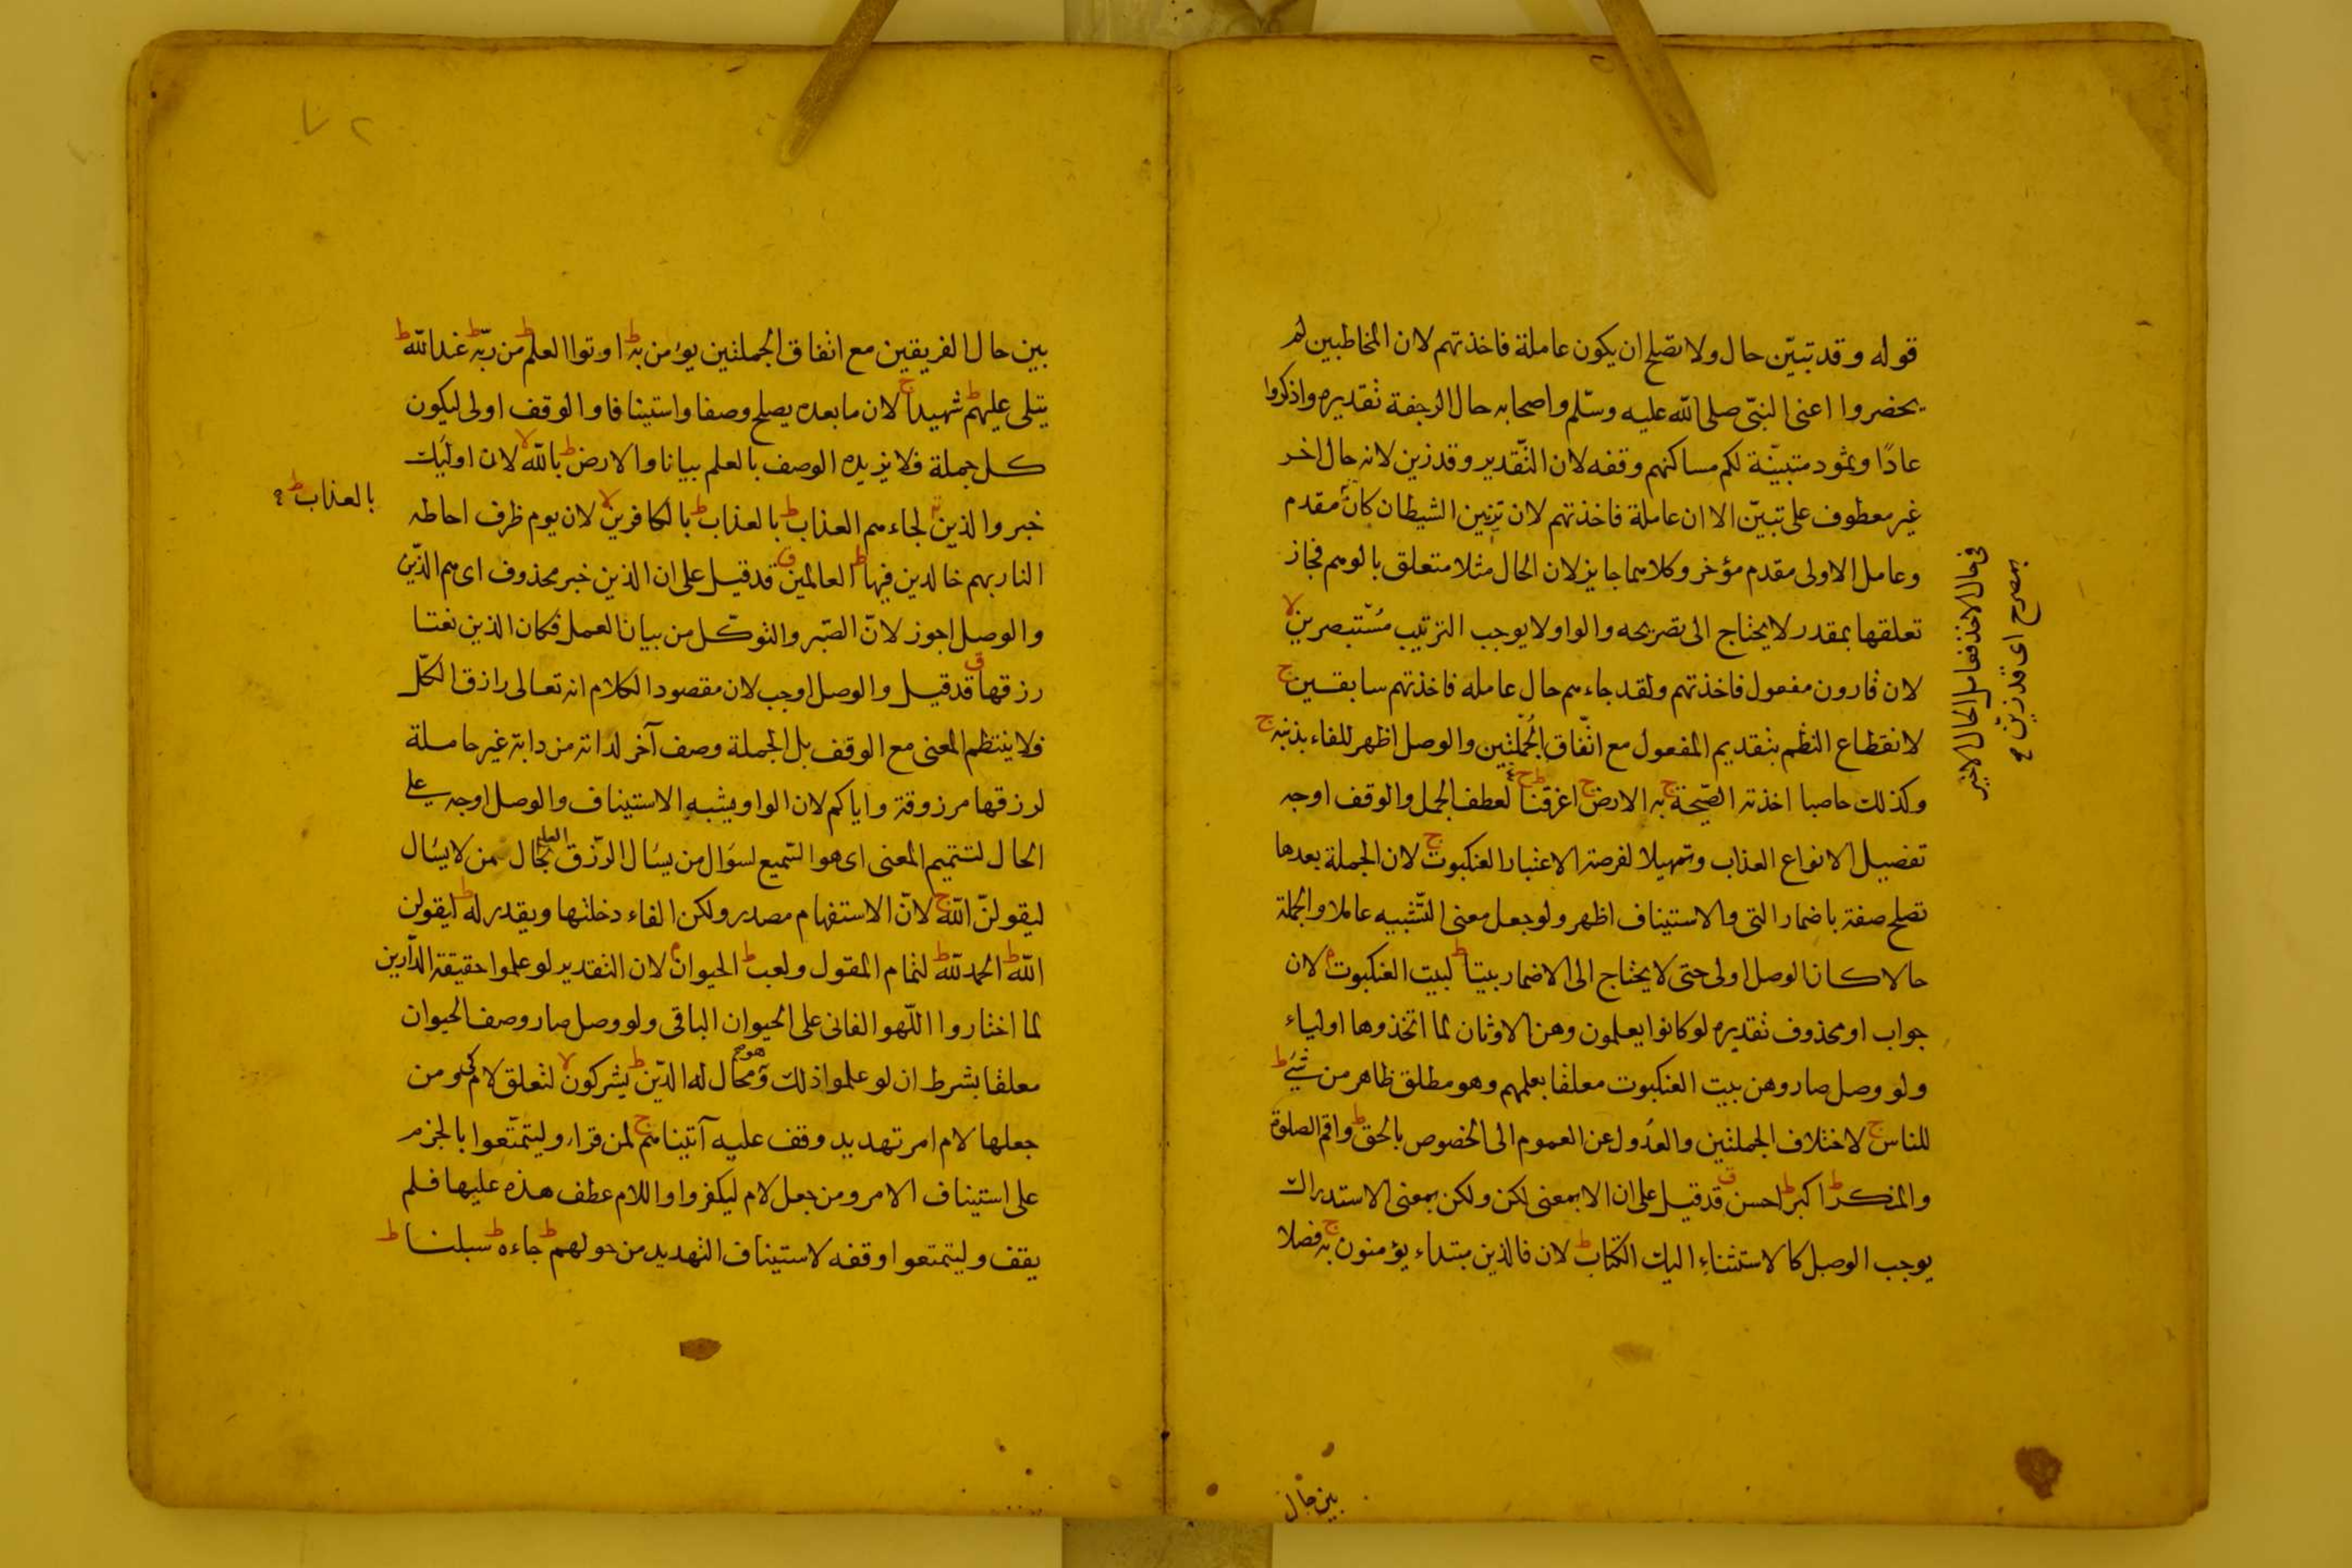 قوله وقد تبيّن حال ولا تصلح ان يكون عاملة فاخذتهم لان المخاطبين لم
يحضروا اعنى النبىّ صلى اللّه عليه وسلّم واصحابه حال الرجفة تقديره واذكروا
عادًا وثمود متبينّة لكم مساكنهم وقفه لان التّقدير وقد زين لانه حال اخر
غير معطوف على تبيّن الا ان عاملة فاخذتهم لان تزيين الشيطان كان مقدم
وعامل الاولى مقدم مؤخر وكلاهما جايز لان الحال مثلا متعلق بالوهم فجاز
تعلقها بمقدر لا يحتاج الى تصريحه والواو لا يوجب الترتيب مُسْتبصرين لا
لان قارون مفعول فاخذتهم ولقد جاءهم حال عامله فاخذتهم سابقين ج
لانقطاع النظم بتقديم المفعول مع اتّفاق الجُملتين والوصل اظهر للفاء بذنبه ج
وكذلك حاصبا اخذته الصّيحة ج به الارض ج اغرقنا ج لعطف الجمل والوقف اوجه
تفصيل الانواع العذاب وتمهيلا لفرصة الاعتبار العنكبوت ج لان الجملة بعدها
تصلح صفة باضمار التى والاستيناف اظهر ولو جعل معنى التّشبيه عاملا والجملة
حالا كان الوصل اولى حتى لا يحتاج الى الاضمار بيتا ط لبيت العنكبوت م لان
جواب او محذوف تقديره لو كانوا يعلمون وهن الاوثان لما اتخذوها اولياء
ولو وصل صار وهن بيت العنكبوت معلقا بعلمهم وهو مطلق ظاهر من شىء ط
للناس ج لاختلاف الجملتين والعدُول عن العموم الى الخصوص بالحق ط واقم الصلوة
والمنكر ط اكبر ط احسن ق قد قيل على ان الا بمعنى لكن ولكن بمعنى الاستدراك
يوجب الوصل كالاستثناء اليك الكتاب ط لان فالذين مبتداء يؤمنون به ج فصلا
فى حال الاخذ فعامل الحال الاخير
بمصرح اى قد زيّن
بين حال
بين حال الفريقين مع اتفاق الجملتين يؤمن به ط اوتوا العلم ط من ربّه ط عند اللّه ط
يتلى عليهم ط شهيدا ج لان ما بعده يصلح وصفا واستينافا والوقف اولى ليكون
كل جملة فلا يزيده الوصف بالعلم بيانا والارض ط باللّه لا لان اولئك
خبر والذين لجاءهم العذاب ط بالعذاب ط بالكافرين لا لان يوم ظرف احاطه
بالعذاب ط
النار بهم خالدين فيها ط العالمين ق قد قيل على ان الذين خبر محذوف اى هم الذين
والوصل اجوز لانّ الصّبر والتوكّل من بيان العمل فكان الذين نعتا
رزقها ق قد قيل والوصل اوجب لان مقصود الكلام انه تعالى رازق الكلّ
فلا ينتظم المعنى مع الوقف بل الجملة وصف آخر لدابة من دابة غير حاملة
لرزقها مرزوقة واياكم لان الواو يشبه الاستيناف والوصل اوجه على
الحال لتتميم المعنى اى هو السّميع لسؤال من يسأل الرّزق العليم بحال من لا يسأل
ليقولنّ اللّه ج لانّ الاستفهام مصدر ولكن الفاء دخلتها ويقدر له ط ليقولن
اللّه ط الحمد للّه ط لتمام المقول ولعب ط الحيوان م لان التقدير لو علموا حقيقة الدّارين
لما اختاروا اللّهو الفانى على الحيوان الباقى ولو وصل صار وصف الحيوان
معلقا بشرط ان لو علموا ذلك وهو محال له الدّين ط يشركون لا لتعلق لام كى ومن
جعلها لام امر تهديد وقف عليه آتيناهم ج لمن قراء وليتمتّعوا بالجزم
على استيناف الامر ومن جعل لام ليكفروا واللام عطف هذه عليها فلم
يقف وليتمتعوا وقفه لاستيناف التهديد من حولهم ط جاءه ط سبلنا ط